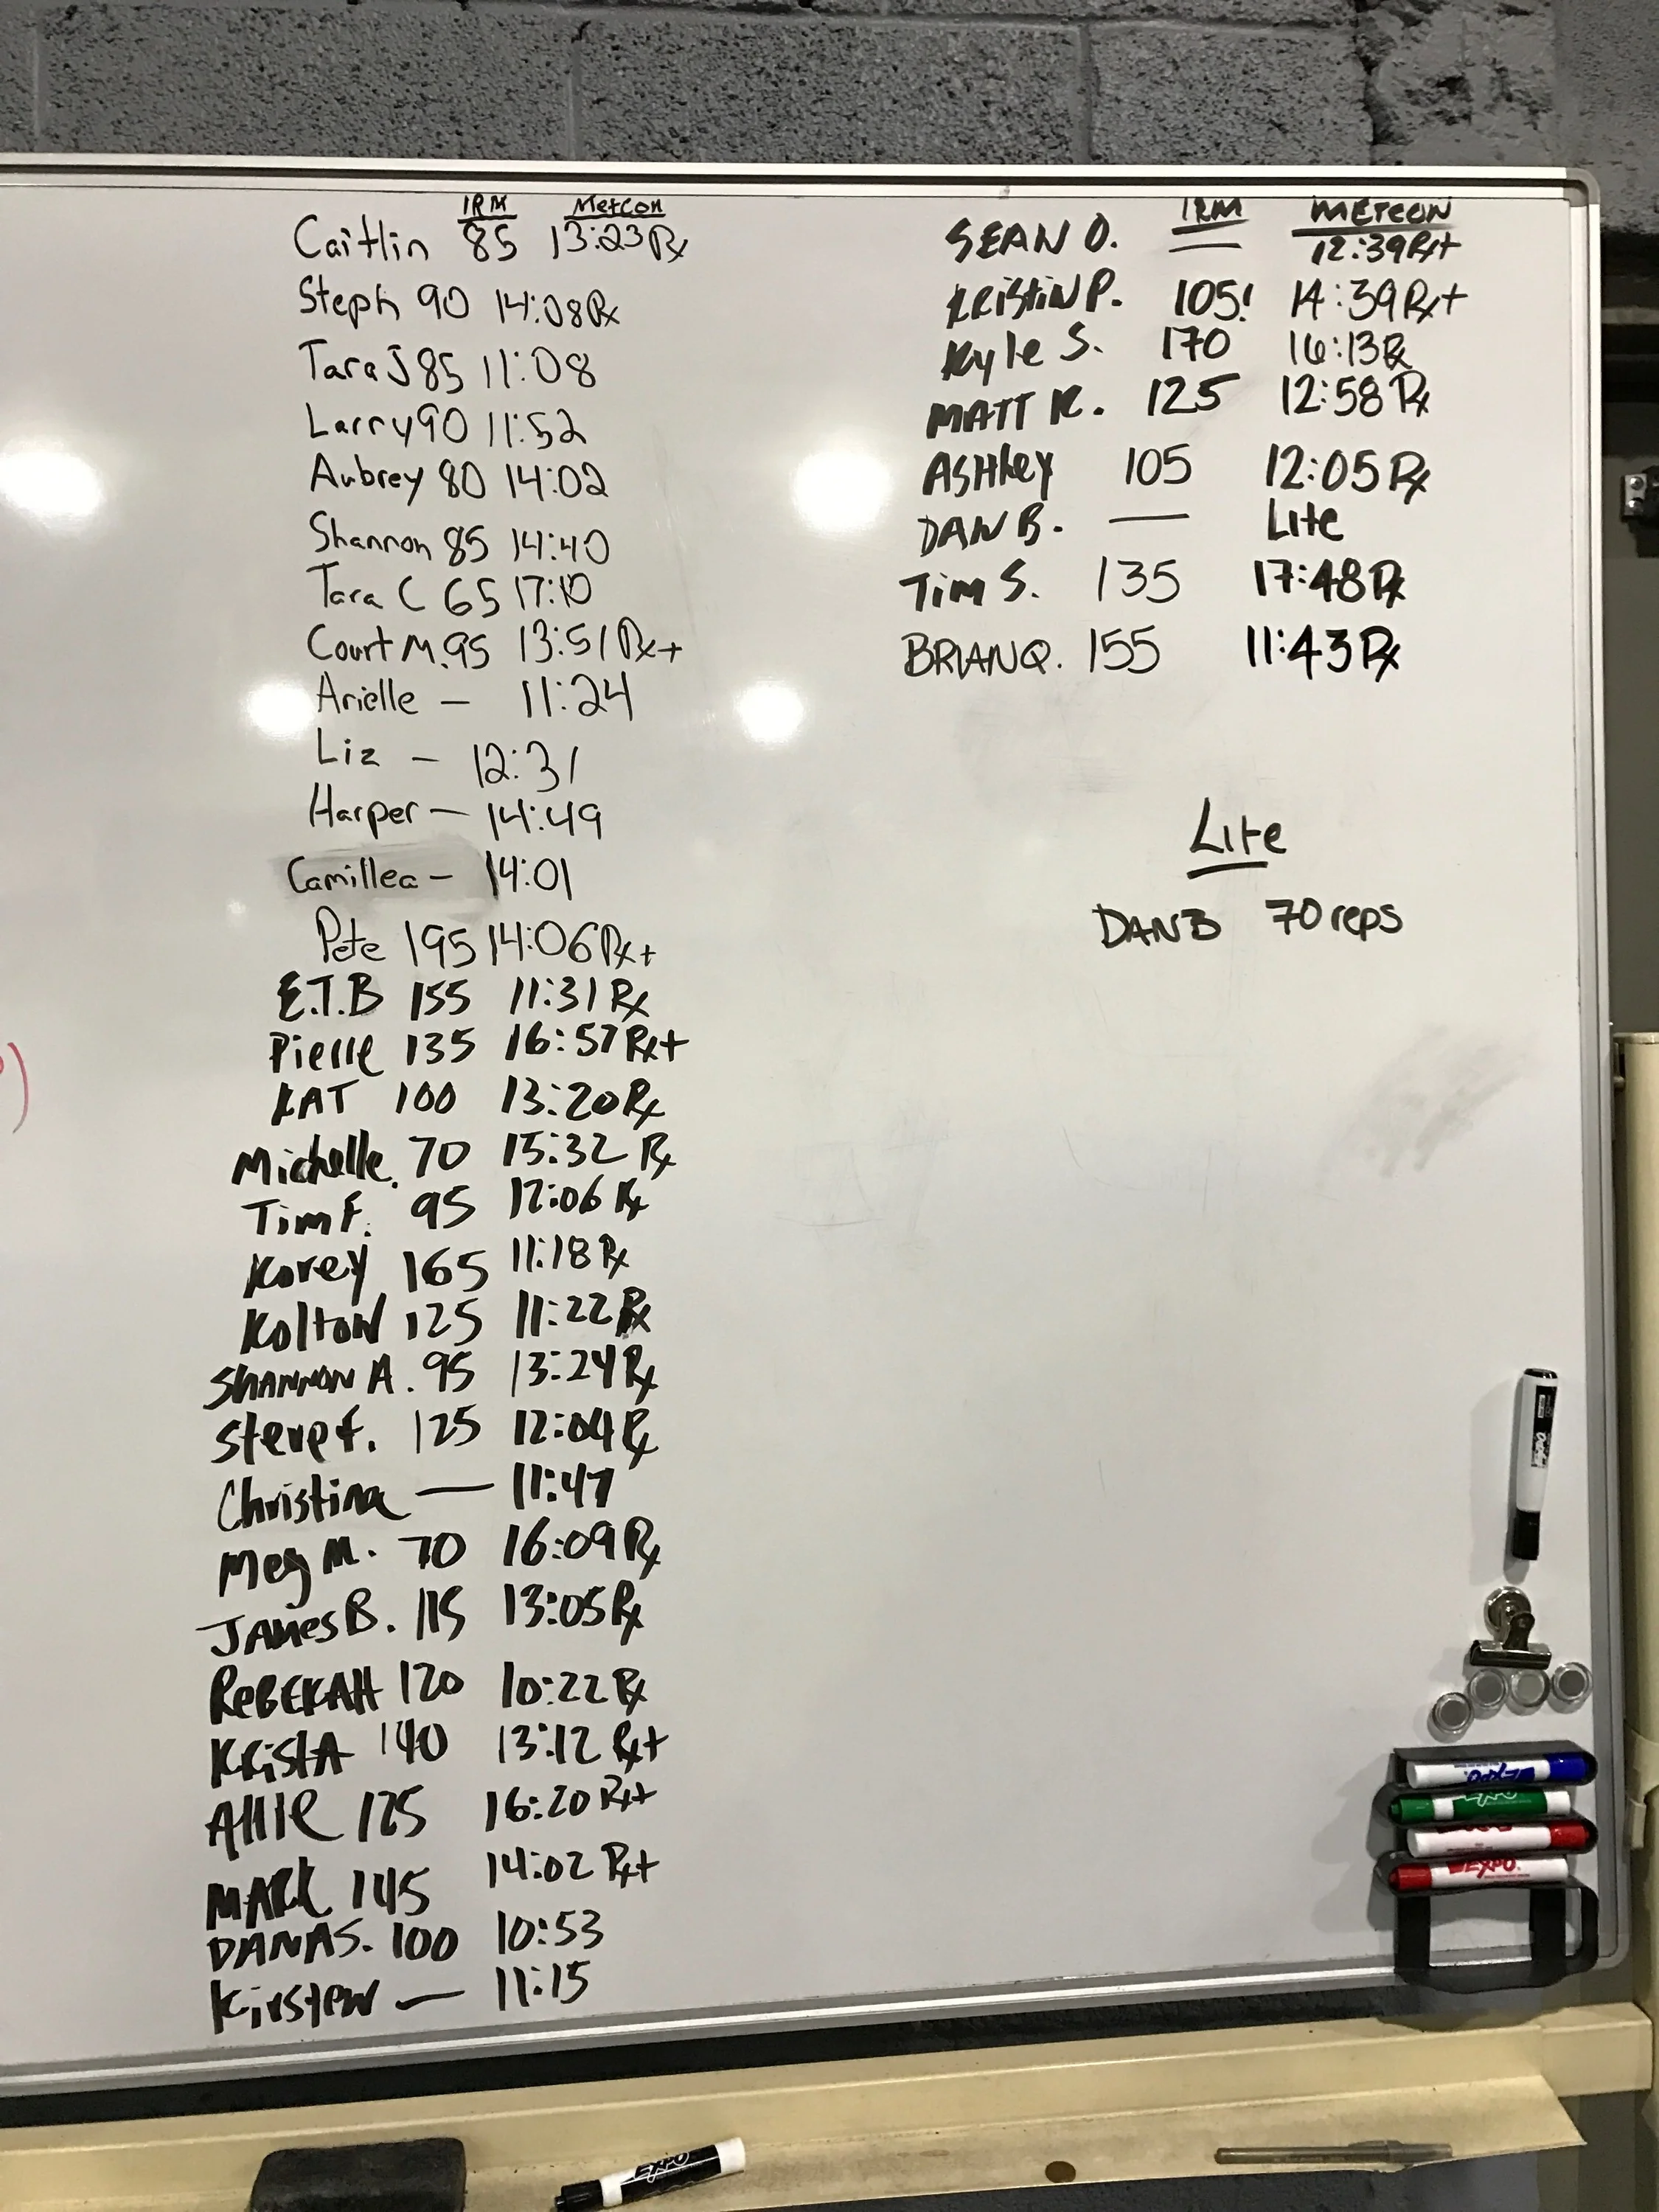 1RM Metcon
Caitlin 85 13:23 Rx
Steph 90 14:08 Rx
Tara J 85 11:08
Larry 90 11:52
Aubrey 80 14:02
Shannon 85 14:40
Tara C 65 17:10
Court M. 95 13:51 Rx+
Arielle – 11:24
Liz – 12:31
Harper – 14:49
Camillea – 14:01
Pete 195 14:06 Rx+
E.T.B 155 11:31 Rx
Pierre 135 16:57 Rx+
KAT 100 13:20 Rx
Michelle. 70 15:32 Rx
Tim F. 95 12:06 Rx
Korey 165 11:18 Rx
Kolton 125 11:22 Rx
SHANNON A. 95 13:24 Rx
Steve F. 125 12:04 Rx
Christina — 11:47
Meg M. 70 16:09 Rx
JAMES B. 115 13:05 Rx
REBEKAH 120 10:22 Rx
KristA 140 13:12 Rx+
AllIE 125 16:20 Rx+
MARK 145 14:02 Rx+
DANA S. 100 10:53
Kirsten — 11:15
1RM METCON
SEAN O. — 12:39 Rx+
KRistiN P. 105! 14:39 Rx+
Kyle S. 170 16:13 Rx
MATT K. 125 12:58 Rx
ASHley 105 12:05 Rx
DAN B. — Lite
Tim S. 135 17:48 Rx
BRIAN Q. 155 11:43 Rx
Lite
DAN B 70 reps
EXPO
EXPO
EXPO
EXPO